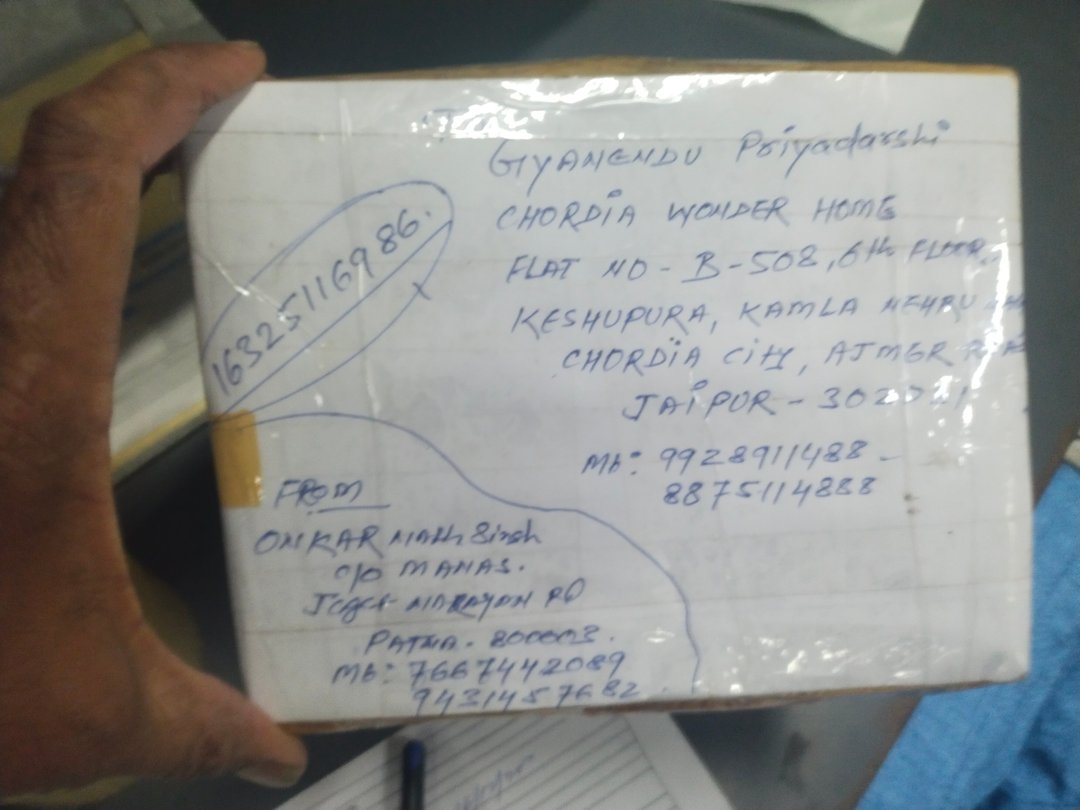 GYANENDU Priyadarshi
CHORDIA WONDER HOME
FLAT NO - B-508, 6th FLOOR,
KESHUPURA, KAMLA NEHRU
CHORDIA City, AJMER
JAIPUR -
Mb: 9928911488 -
8875114888
163251116986.
FROM
ONKAR NATH Singh
c/o MANAS.
NARAYAN RD
PATNA. 800003.
Mb: 7667442089
9431457682